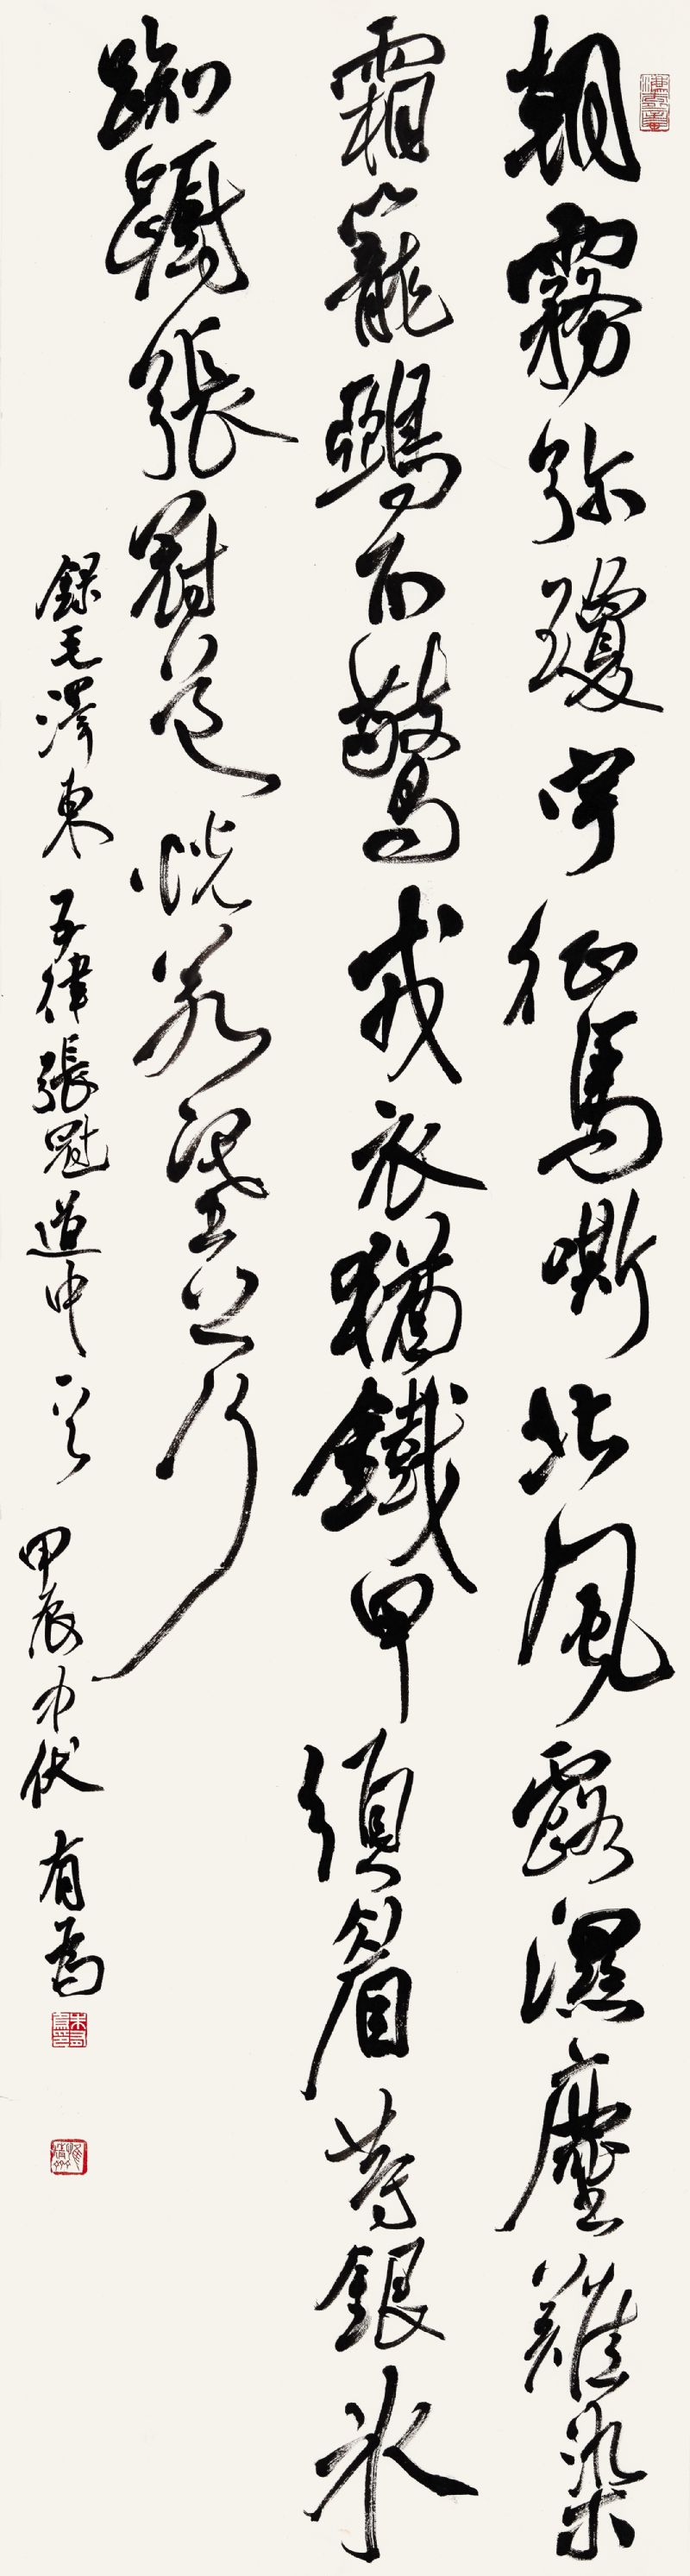 朝霧弥瓊宇征馬嘶北風露濕塵難染
霜籠鵶不驚戎衣猶鐵甲須眉等銀冰
踟躕張冠道恍若塞上行
錄毛澤東五律張冠道中一首 甲辰中伏 有為